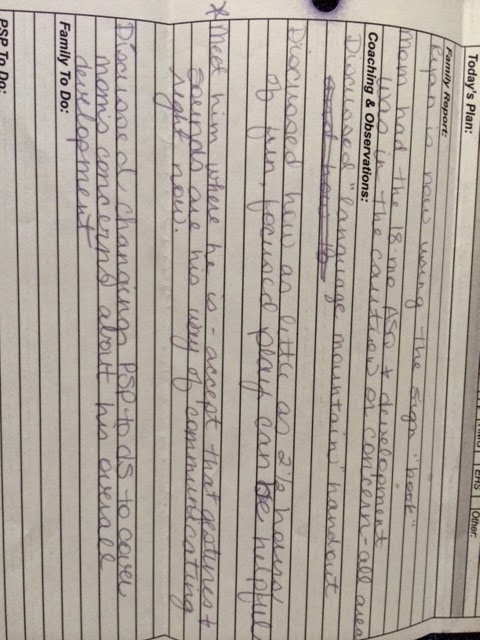 Today's Plan:
EHS Other:
Family Report:
Ryan is now using the sign "book"
Mom had the 18 mo ASQ & development
was in the caution or concern - all area
Coaching & Observations:
Discussed "language mountain" handout
Discussed how as little as 2 1/2 hours
of fun, focused play can be helpful
* Meet him where he is - accept that gestures +
sounds are his way of communicating
right now.
Discussed changing PSP to DS to cover
mom's concerns about his overall
development
Family To Do:
PSP To Do: